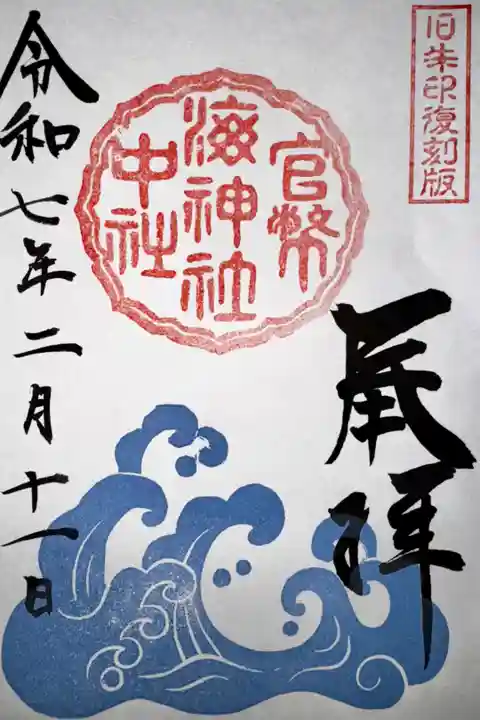 旧朱印復刻版
奉拝
官幣
中社
海神社
令和七年二月十一日